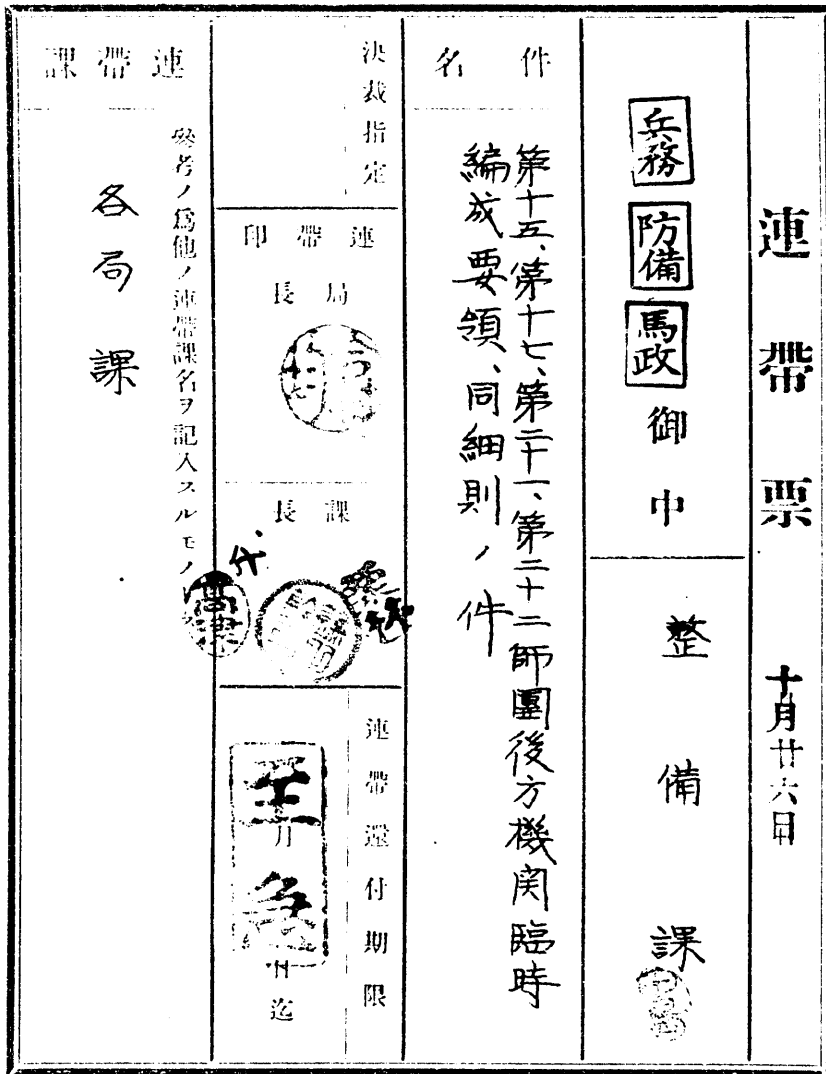 連帶票
十月廿六日
兵務
防備
馬政
御中
整備課
件名
第十五、第十七、第二十一、第二十二師團後方機関臨時
編成要領、同細則ノ件
決裁指定
連帶印
局長
課長
代
連帶還付期限
月
日迄
至急
連帶課
參考ノ爲他ノ連帶課名ヲ記入スルモノ
各局課